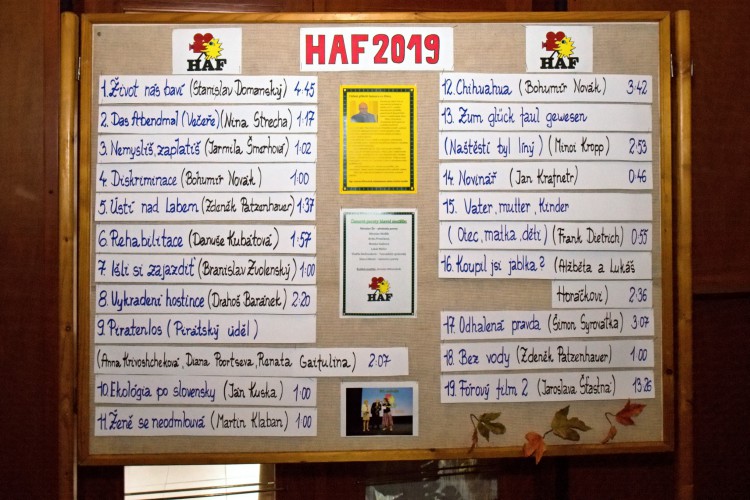 HAF
HAF 2019
HAF
1. Život nás baví (Stanislav Domanský) 4:45
2. Das Abendmal (Večeře) (Nina Strecha) 1:17
3. Nemyslíš, zaplatíš (Jarmila Šmerhová) 1:02
4. Diskriminace (Bohumír Novák) 1:00
5. Ústí nad Labem (Zdeněk Patzenhauer) 1:37
6. Rehabilitace (Danuše Kubátová) 1:57
7. Išli si zajazdiť (Branislav Zvolenský) 1:00
8. Vykradení hostince (Drahoš Baránek) 2:20
9. Piratenlos (Pirátský úděl)
(Anna Krivoshcheková, Diana Poortseva, Renata Gaifulina) 2:07
10. Ekológia po slovensky (Ján Kuska) 1:00
11. Ženě se neodmlouvá (Martin Klaban) 1:00
12. Chihuahua (Bohumír Novák) 3:42
13. Zum glück faul gewesen
(Naštěstí byl líný) (Minoi Kropp) 2:53
14. Novinář (Jan Krajnetr) 0:46
15. Vater, mutter, Kinder
(Otec, matka, děti) (Frank Dietrich) 0:55
16. Koupil jsi jablka? (Alžběta a Lukáš
Horáčkovi) 2:36
17. Odhalená pravda (Šimon Syrovátka) 3:07
18. Bez vody (Zdeněk Patzenhauer) 1:00
19. Fórový film 2 (Jaroslava Šťastná) 13:26
HAF